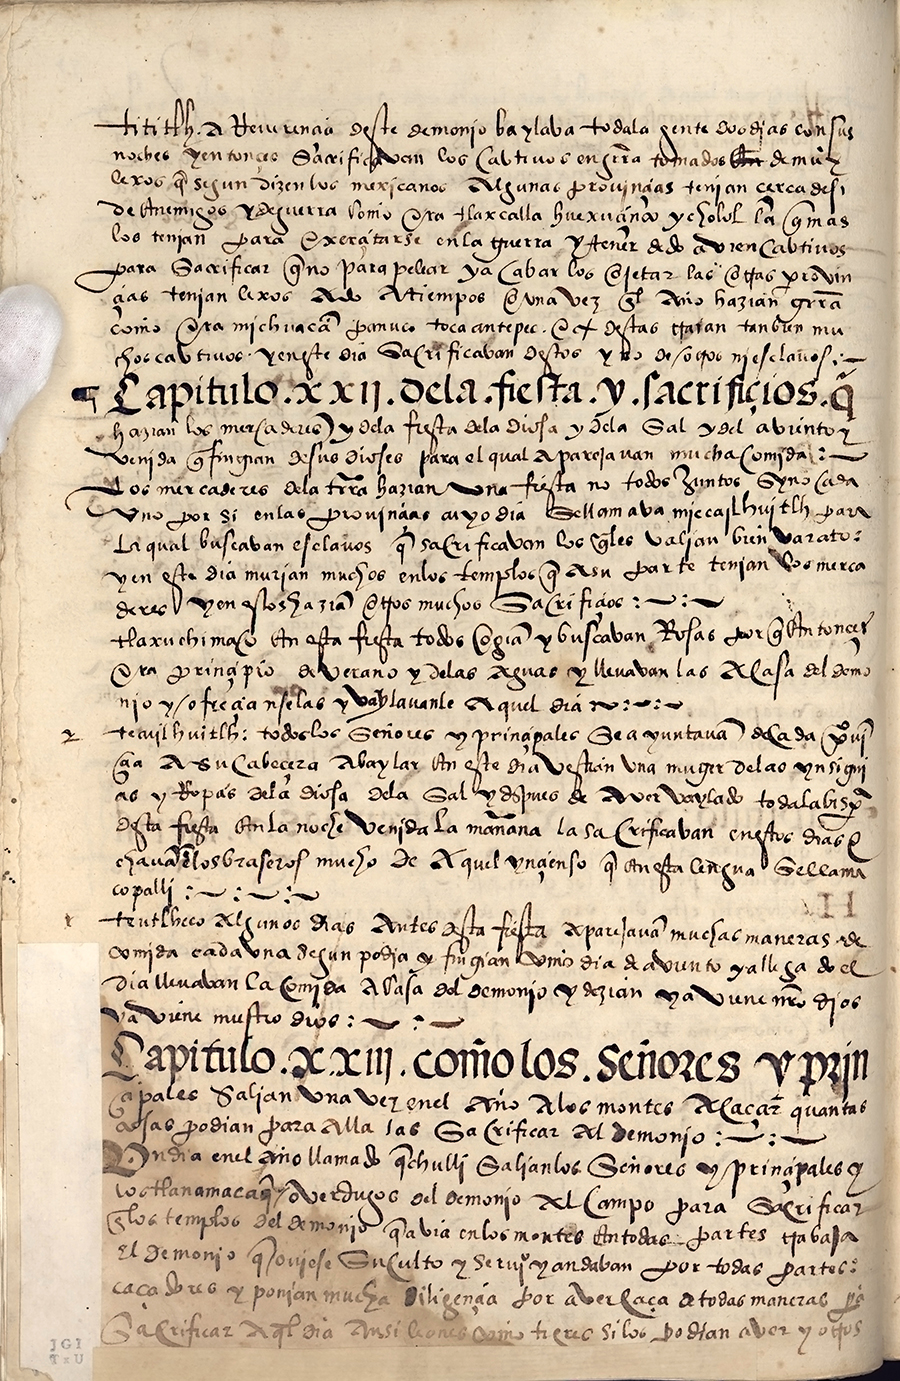 tititlh. A Reverençia deste demonio baylava toda la gente dos dias con sus
noches y entonces Sacrificavan los Cabtivos en grra tomados de muy
lexos q̃ segun dizen los mexicanos Algunas provinçias tenian cerca de si
de Enemigos y de guerra Como Era tlaxcalla huexuçinco y cholollan q̃ mas
los tenian para Exerçitarse en la guerra y tener de do aver Cabtivos
para Sacrificar q̃ no para pelear y aCabarlos Ejetar las otras provin
çias tenian lexos A do A tiempos o una vez el Año hazian grrã
como Era michuacã panuco tecoantepec. etc destas traian tanbien mu
chos cabtivos. y en este dia Sacrificavan destos y no de otros ni esclavos:~
Capitulo. XXII. de la. fiesta. y. sacrifiçios. q̃
hazian los mercaderes y de la fiesta de la diosa y de la Sal y del aviento y
venida q̃ fingian de sus dioses para el qual Aparejavan mucha Comida:~
Los mercaderes de la trra hazian una fiesta no todos Juntos Syno Cada
uno por si en las provinçias cuyo dia Se llamava miccailhuitlh para
la qual buscavan esclavos q̃ sacrificavan los q̃les valian bien varato:
y en este dia murian muchos en los templos q̃ A su parte tenian los merca
deres y en estos haziã otros muchos Sacrifiçios :~:~
tlaxuchimaco En esta fiesta todos Cogiã y buscavan Rosas por q̃ Entonces
Era prinçipio de verano y de las Aguas y llevavan las A Casa del demo
nio y ofreçianselas y vaylavanle Aquel dia ~:~:~
2 tecuilhuitlh: todos los Señores y prinçipales Se ayuntavã de Cada provin
çia A su Cabecera A baylar En este dia vestian una muger de las ynsigni
as y Ropas de la diosa de la Sal y despues de Aver vaylado toda la bispera
desta fiesta En la noche venida la mañana la sacrificavan en estos dias E
chavã En los braseros mucho de Aquel ynçienso q̃ En esta lengua Se llama
copalli :~:~:~
teutlheco Algunos dias Antes desta fiesta Aparejavã muchas maneras de
comida cada una segun podia y fingian Como dia de aviento y allegado el
dia llevavan la Comida A Casa del demonio y dezian ya viene nro dios
ya viene nuestro dios :~ :~
Capitulo. XXIII. como los. Señores y prin
çipales Salian una vez en el Año A los montes A Caçar quantas
cosas podian para Alla las Sacrificar Al demonio :~:~
Un dia en el año llamado q̃chulli Salian los Señores y prinçipales y
los tlanamacaq̃ o verdugos del demonio Al Campo para Sacrificar
En los templos del demonio q̃ avia en los montes En todas partes trabaja
El demonio q̃ oviese Su Culto y Servi y andavan por todas partes:
caçadores y ponian mucha diligençia por aver Caça de todas maneras pa
Sacrificar Aql dia Ansi leones como tigres si los podian aver y otros
JGI
TxU